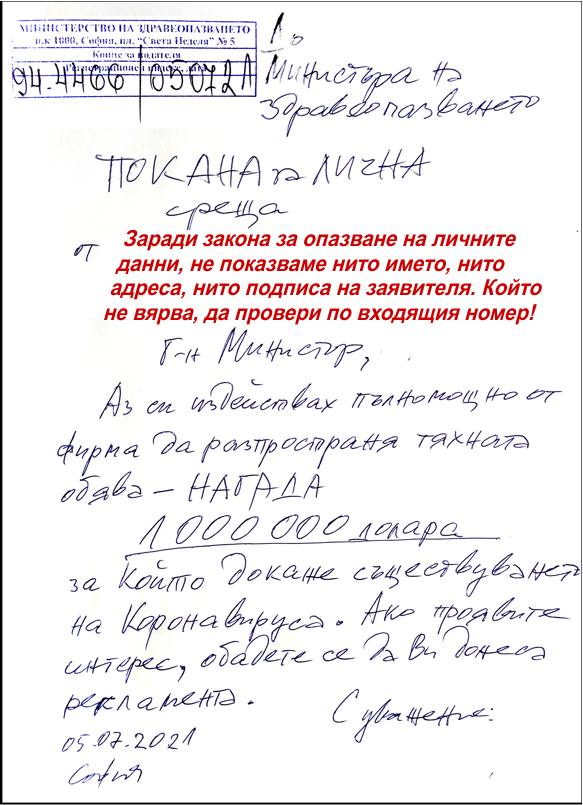 МИНИСТЕРСТВО НА ЗДРАВЕОПАЗВАНЕТО
п.к 1000, София, пл. “Света Неделя” № 5
Копие за подателя
Регистрационен индекс, дата
94-4466 05072
До
Министъра на
здравеопазването
ПОКАНА за ЛИЧНА
среща
от
Заради закона за опазване на личните
данни, не показваме нито името, нито
адреса, нито подписа на заявителя. Който
не вярва, да провери по входящия номер!
Г-н Министър,
Аз си издействах пълномощно от
фирма да разпространя тяхната
обява – НАГРАДА
1 000 000 долара
за Който докаже съществуването
на Коронавируса. Ако проявите
интерес, обадете се да Ви донеса
рекламата.
С уважение:
05.07.2021
София